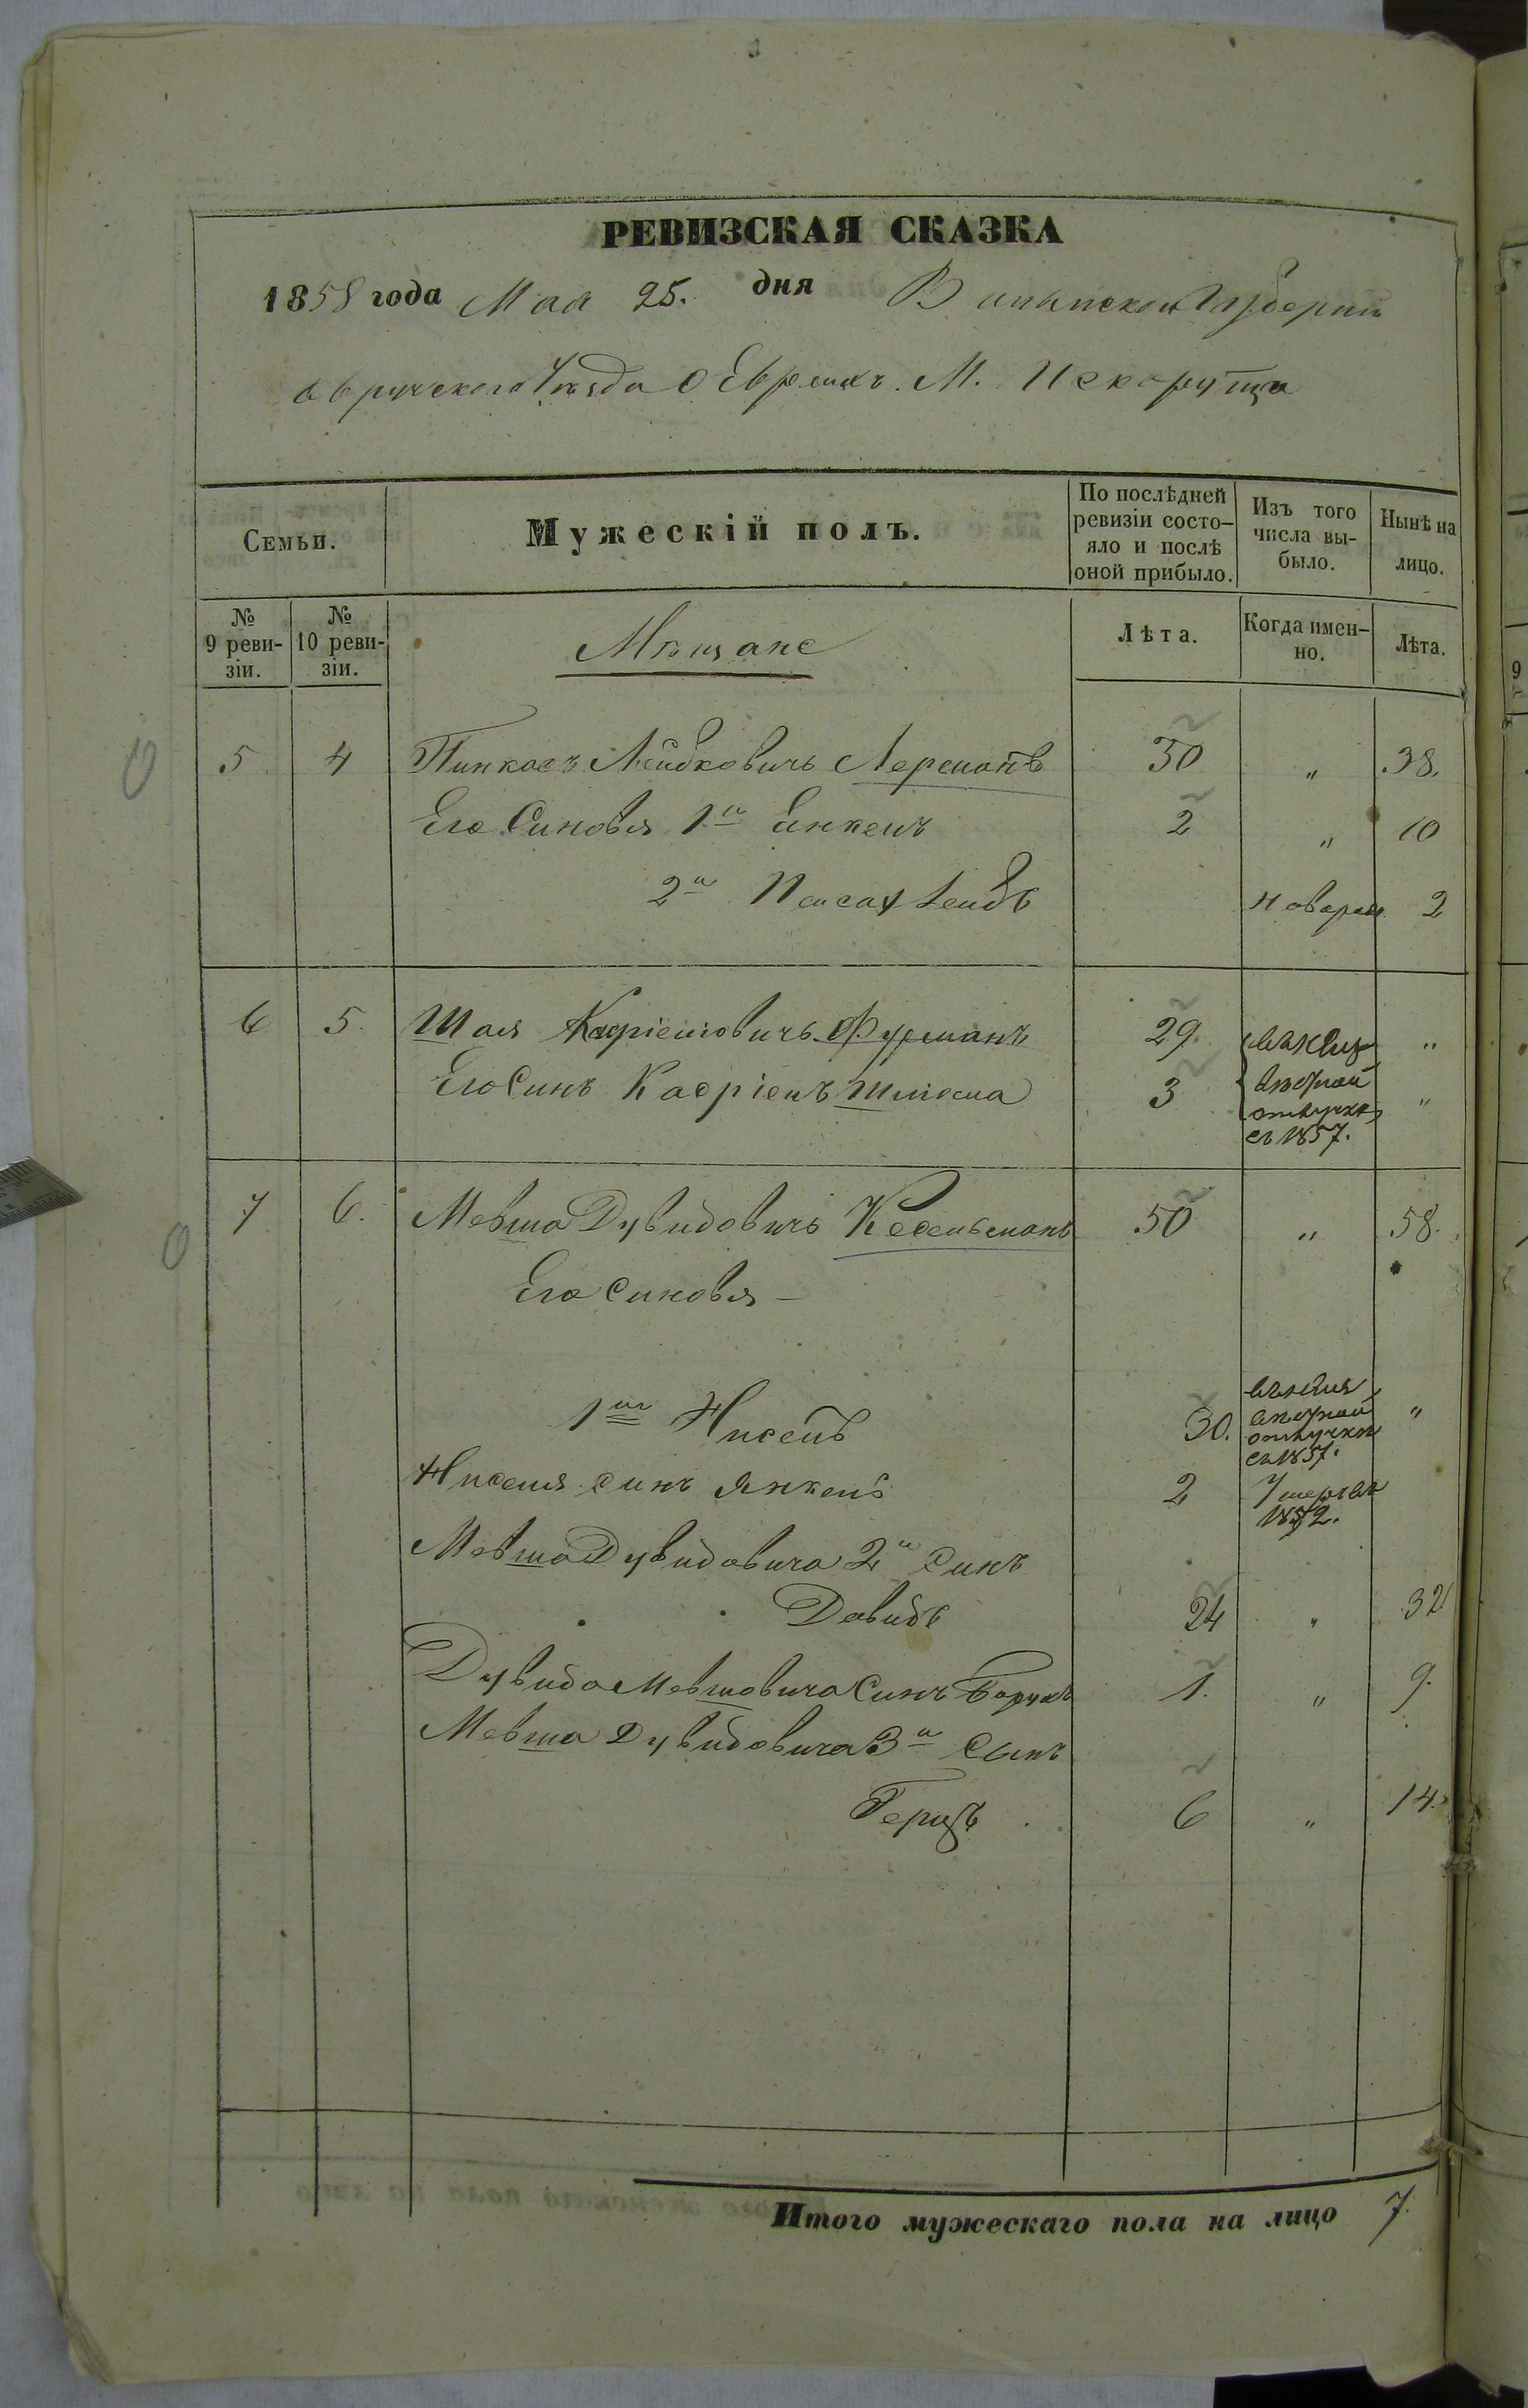 РЕВИЗСКАЯ СКАЗКА
1858 года Мая 25. дня Волынской Губерніи
Овручского Уѣзда О Евреяхъ М. Искорустя
Семьи.
Мужескій полъ.
По послѣдней ревизіи состо-
яло и послѣ
оной прибыло.
Изъ того
числа вы-
было.
Нынѣ на
лицо.
№
9 реви-
зіи.
№
10 реви-
зіи.
Мѣщане
Лѣта.
Когда имен-
но.
Лѣта.
5 4 Пинкасъ Лейбковичь Лерманъ 30 " 38.
Его Синовя 1й Янкель 2 " 10
2й Пейсах Лейбъ новорож. 2
6 5. Шая Касріеловичь Фурманъ 29. "
Его Синъ Касріель Шліома 3 "
въ неизв
ѣстной
отлучкѣ
съ 1857.
7 6. Мевша Дувидовичь Кесельманъ 50 " 58.
Его Синовя -
1й Нисель 30. "
ѣстной
отлучкѣ
съ 1857.
Ниселя синъ Янкель 2 Умеръ въ
1852.
Мевша Дувидовича 2й Синъ
Давидъ 24 " 32
Дувида Мевшовича Синъ Борухъ 1. " 9.
Мевша Дувидовича 3й Сынъ
Герцъ 6 " 14.
Итого мужескаго пола на лицо 7.